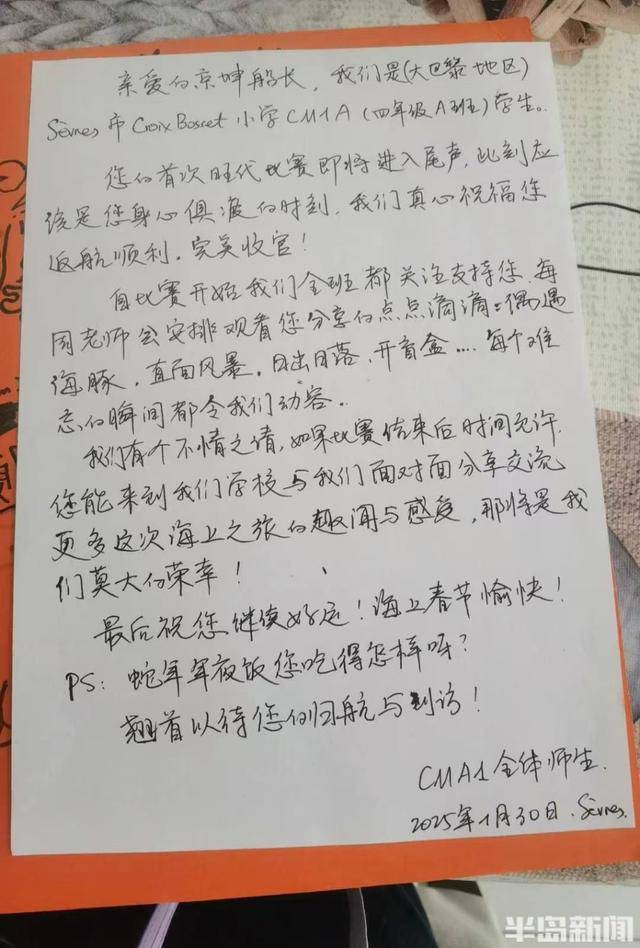 亲爱的京坤船长，我们是(大巴黎地区)
Sèvres市 Croix Bosset 小学 CM1A (四年级A班)学生。
您的首次旺代比赛即将进入尾声，此刻应
该是您身心俱疲的时刻，我们真心祝福您
返航顺利，完美收官！
自比赛开始我们全班都关注支持您，每
周老师会安排观看您分享的点点滴滴：偶遇
海豚，直面风暴，日出日落，开盲盒....每个难
忘的瞬间都令我们动容．
我们有个不情之请，如果比赛结束后时间允许，
您能来到我们学校与我们面对面分享交流
更多这次海上之旅的趣闻与感受，那将是我
们莫大的荣幸！
最后祝您继续好运！海上春节愉快！
PS：蛇年年夜饭您吃得怎样呀？
翘首以待您的归航与到访！
CMA1全体师生．
2025年1月30日．Sèvres，
半岛新闻